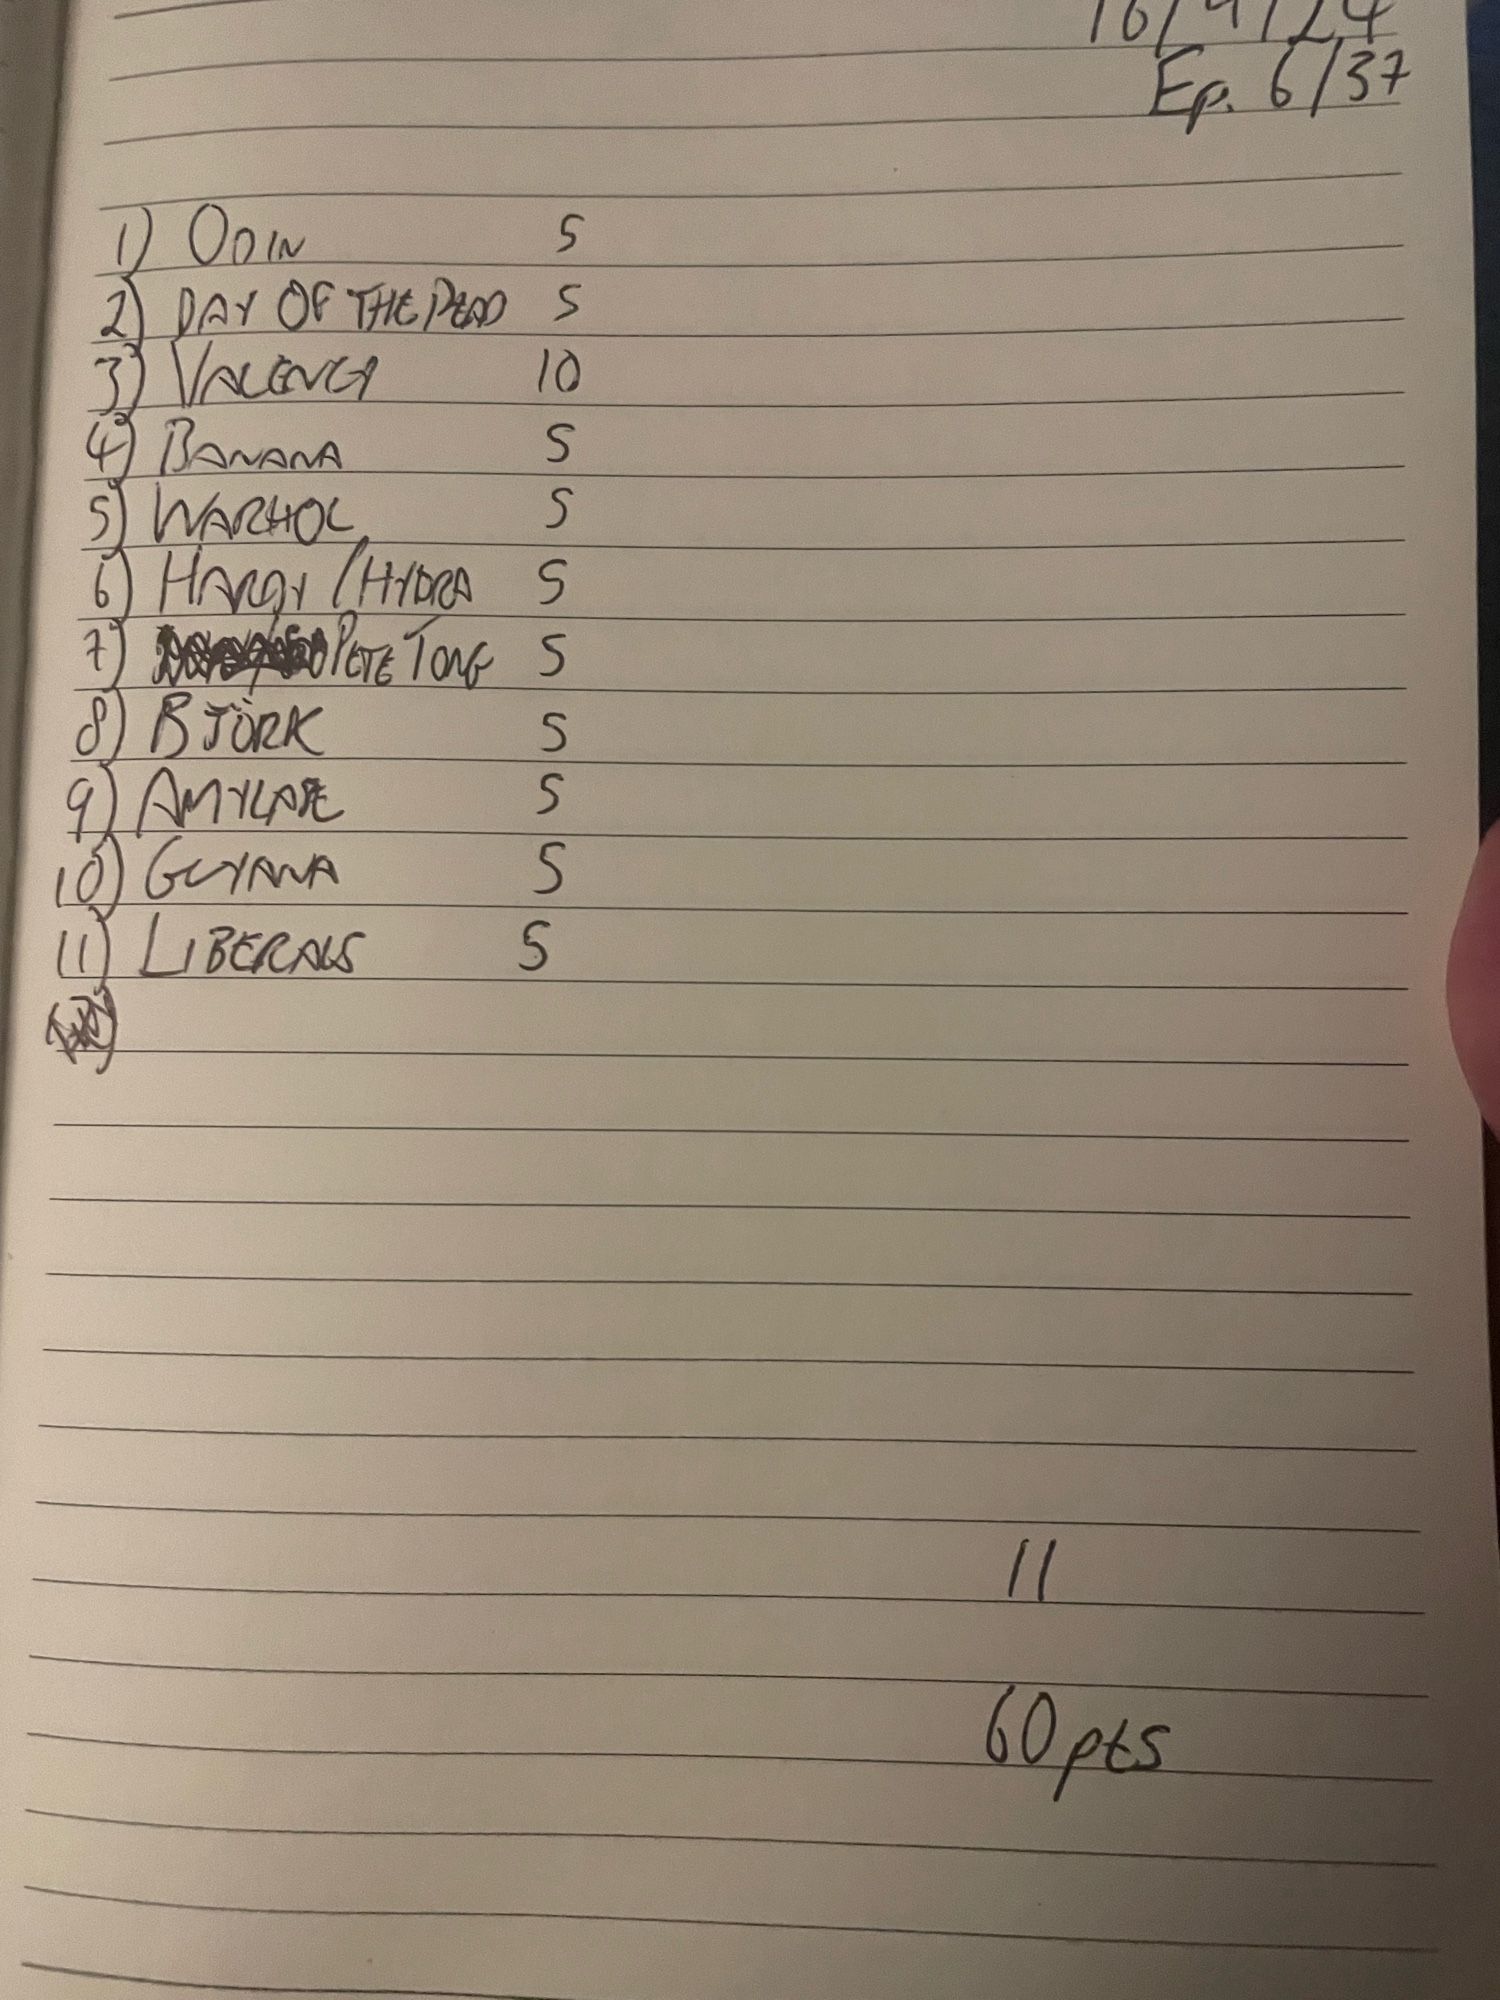 16/9/24
Ep. 6/37
1) ODIN 5
2) DAY OF THE DEAD 5
3) VALENCY 10
4) BANANA 5
5) WARHOL 5
6) /HYDRA 5
7) PETE TONG 5
8) BJÖRK 5
9) AMYLASE 5
10) GUYANA 5
11) LIBERALS 5
11
60pts